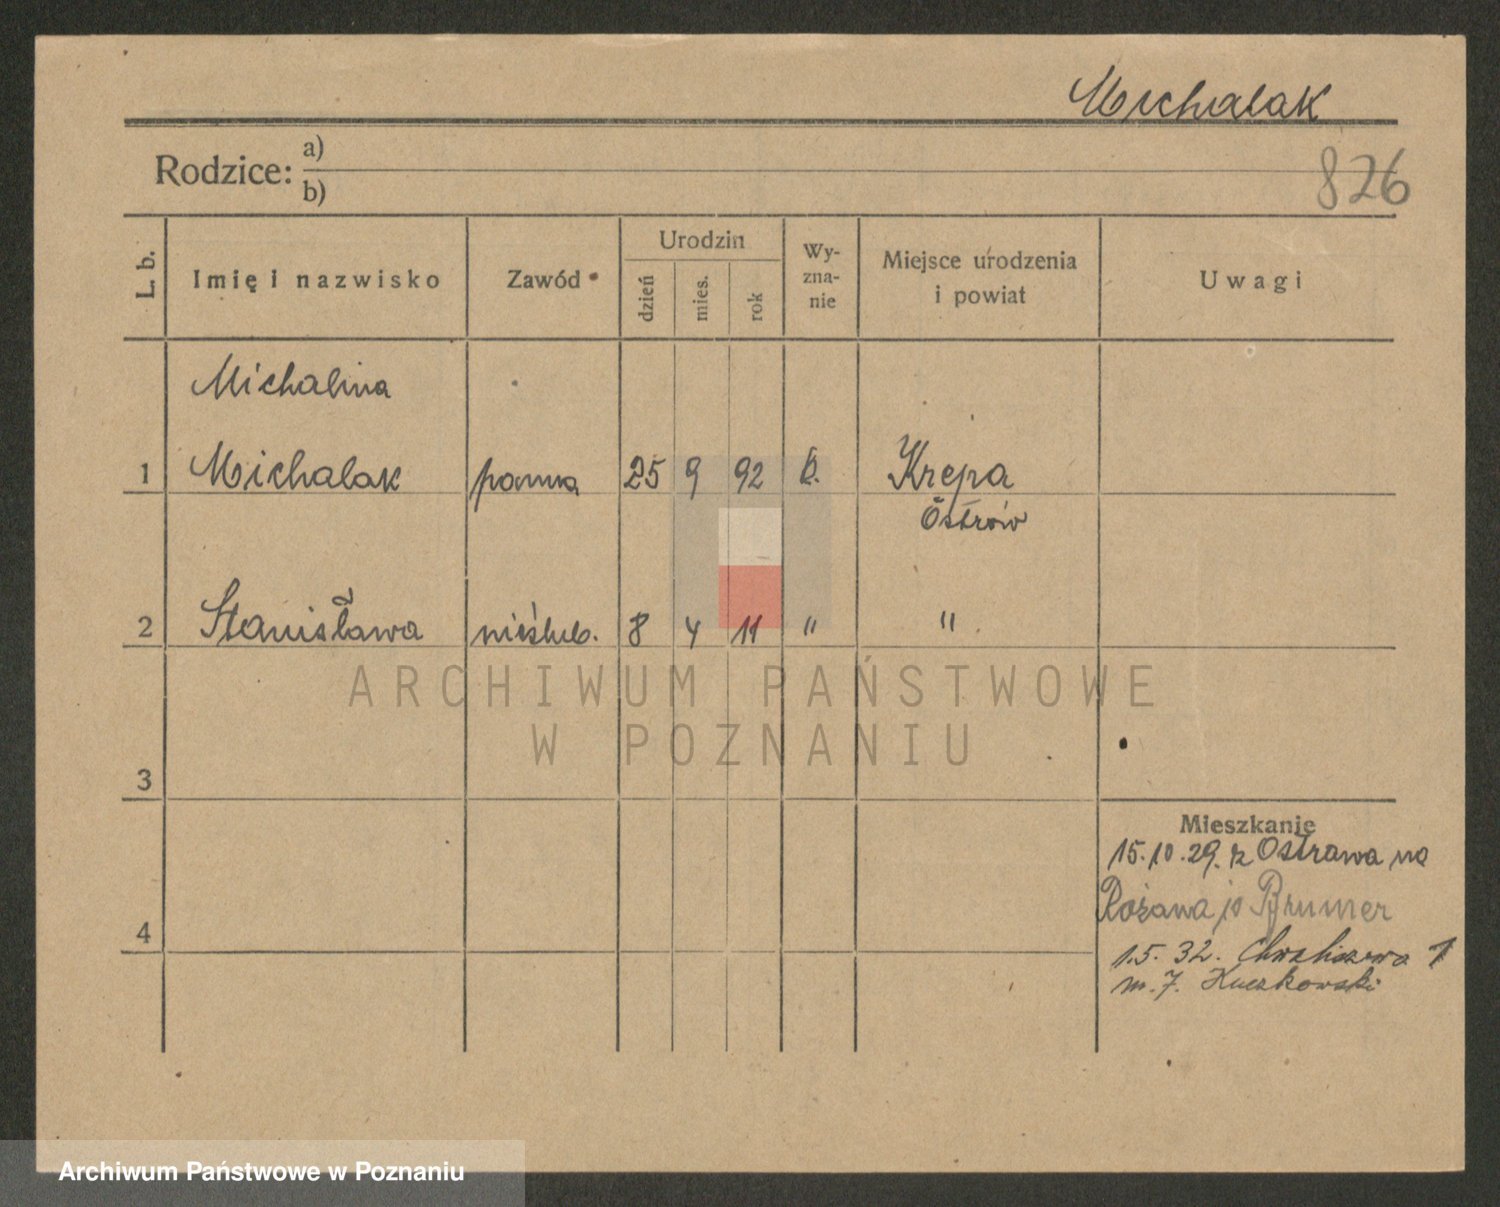 Michalak
Rodzice: a)
b)
826
L. b.
Imię i nazwisko
Zawód
Urodzin
dzień
mies.
rok
Wy-
zna-
nie
Miejsce urodzenia
i powiat
Uwagi
Michalina
1 Michalak panna 25 9 92 k. Krepa
Ostrów
2 Stanisława nieślub. 8 4 11 " "
3
4
Mieszkanie
15.10.29. z Ostrawa na
Różana Brumer
1.5.32. 1
m. 7. Kuczkowski
ARCHIWUM PAŃSTWOWE
W POZNANIU
Archiwum Państwowe w Poznaniu